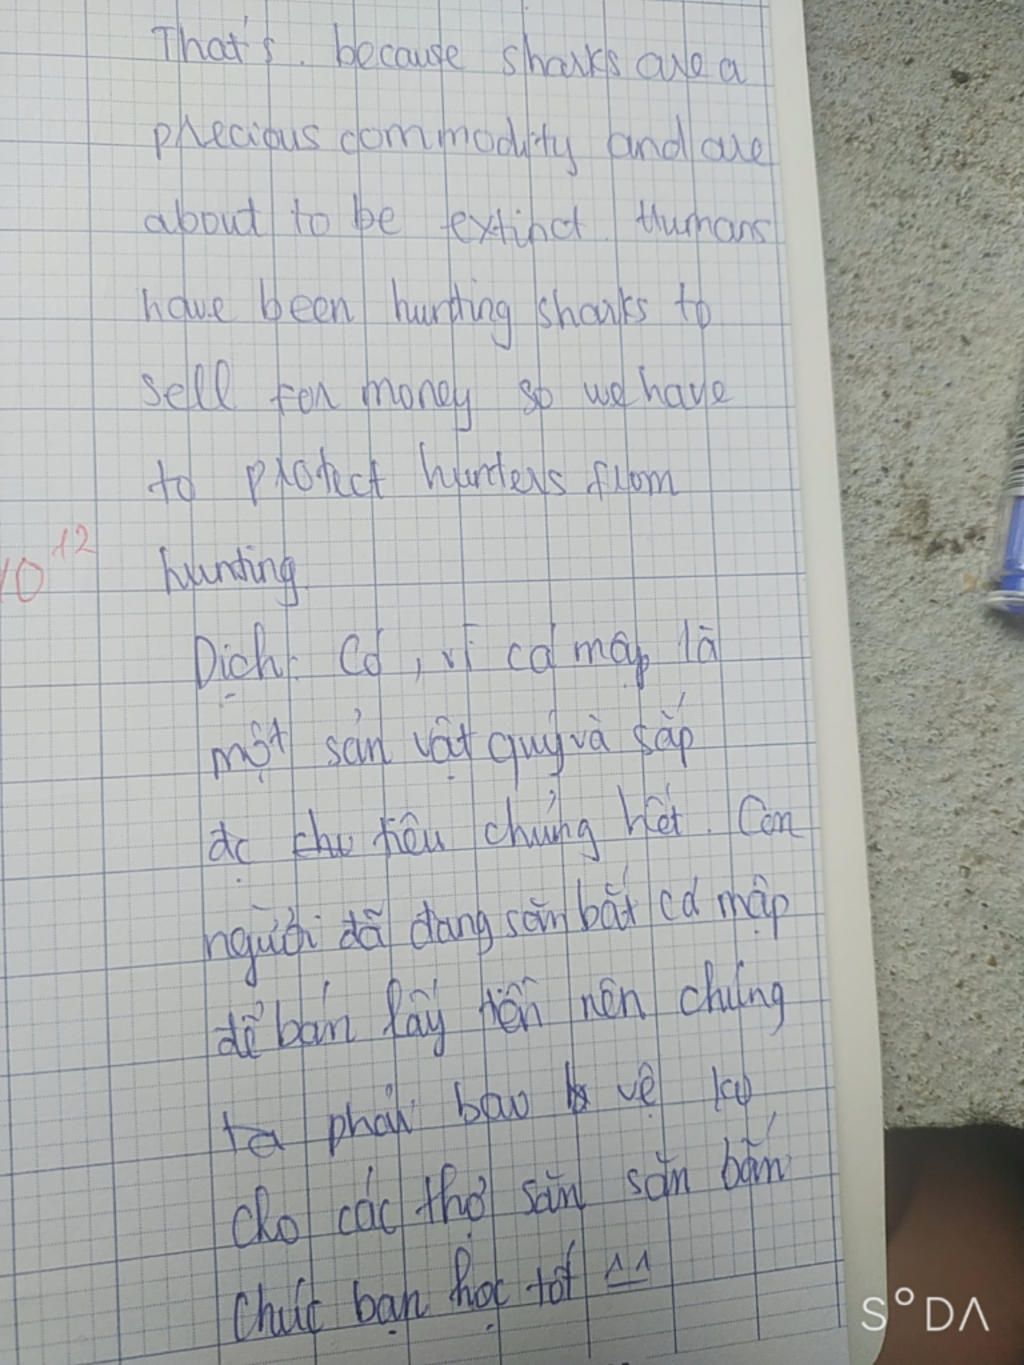 That's. because sharks are a
precious commodity and are
about to be extinct. Humans
have been hunting sharks to
sell for money so we have
to protect hunters from
10^12
hunting
Dịch: Có, vì cá mập là
một sản vật quý và sắp
đc thu tiêu chủng hết. Con
người đã đang săn bắt cá mập
để bán lấy tiền nên chúng
ta phải bảo vệ ko
cho các thợ săn săn bắn
Chúc bạn học tốt ^^
S°DA